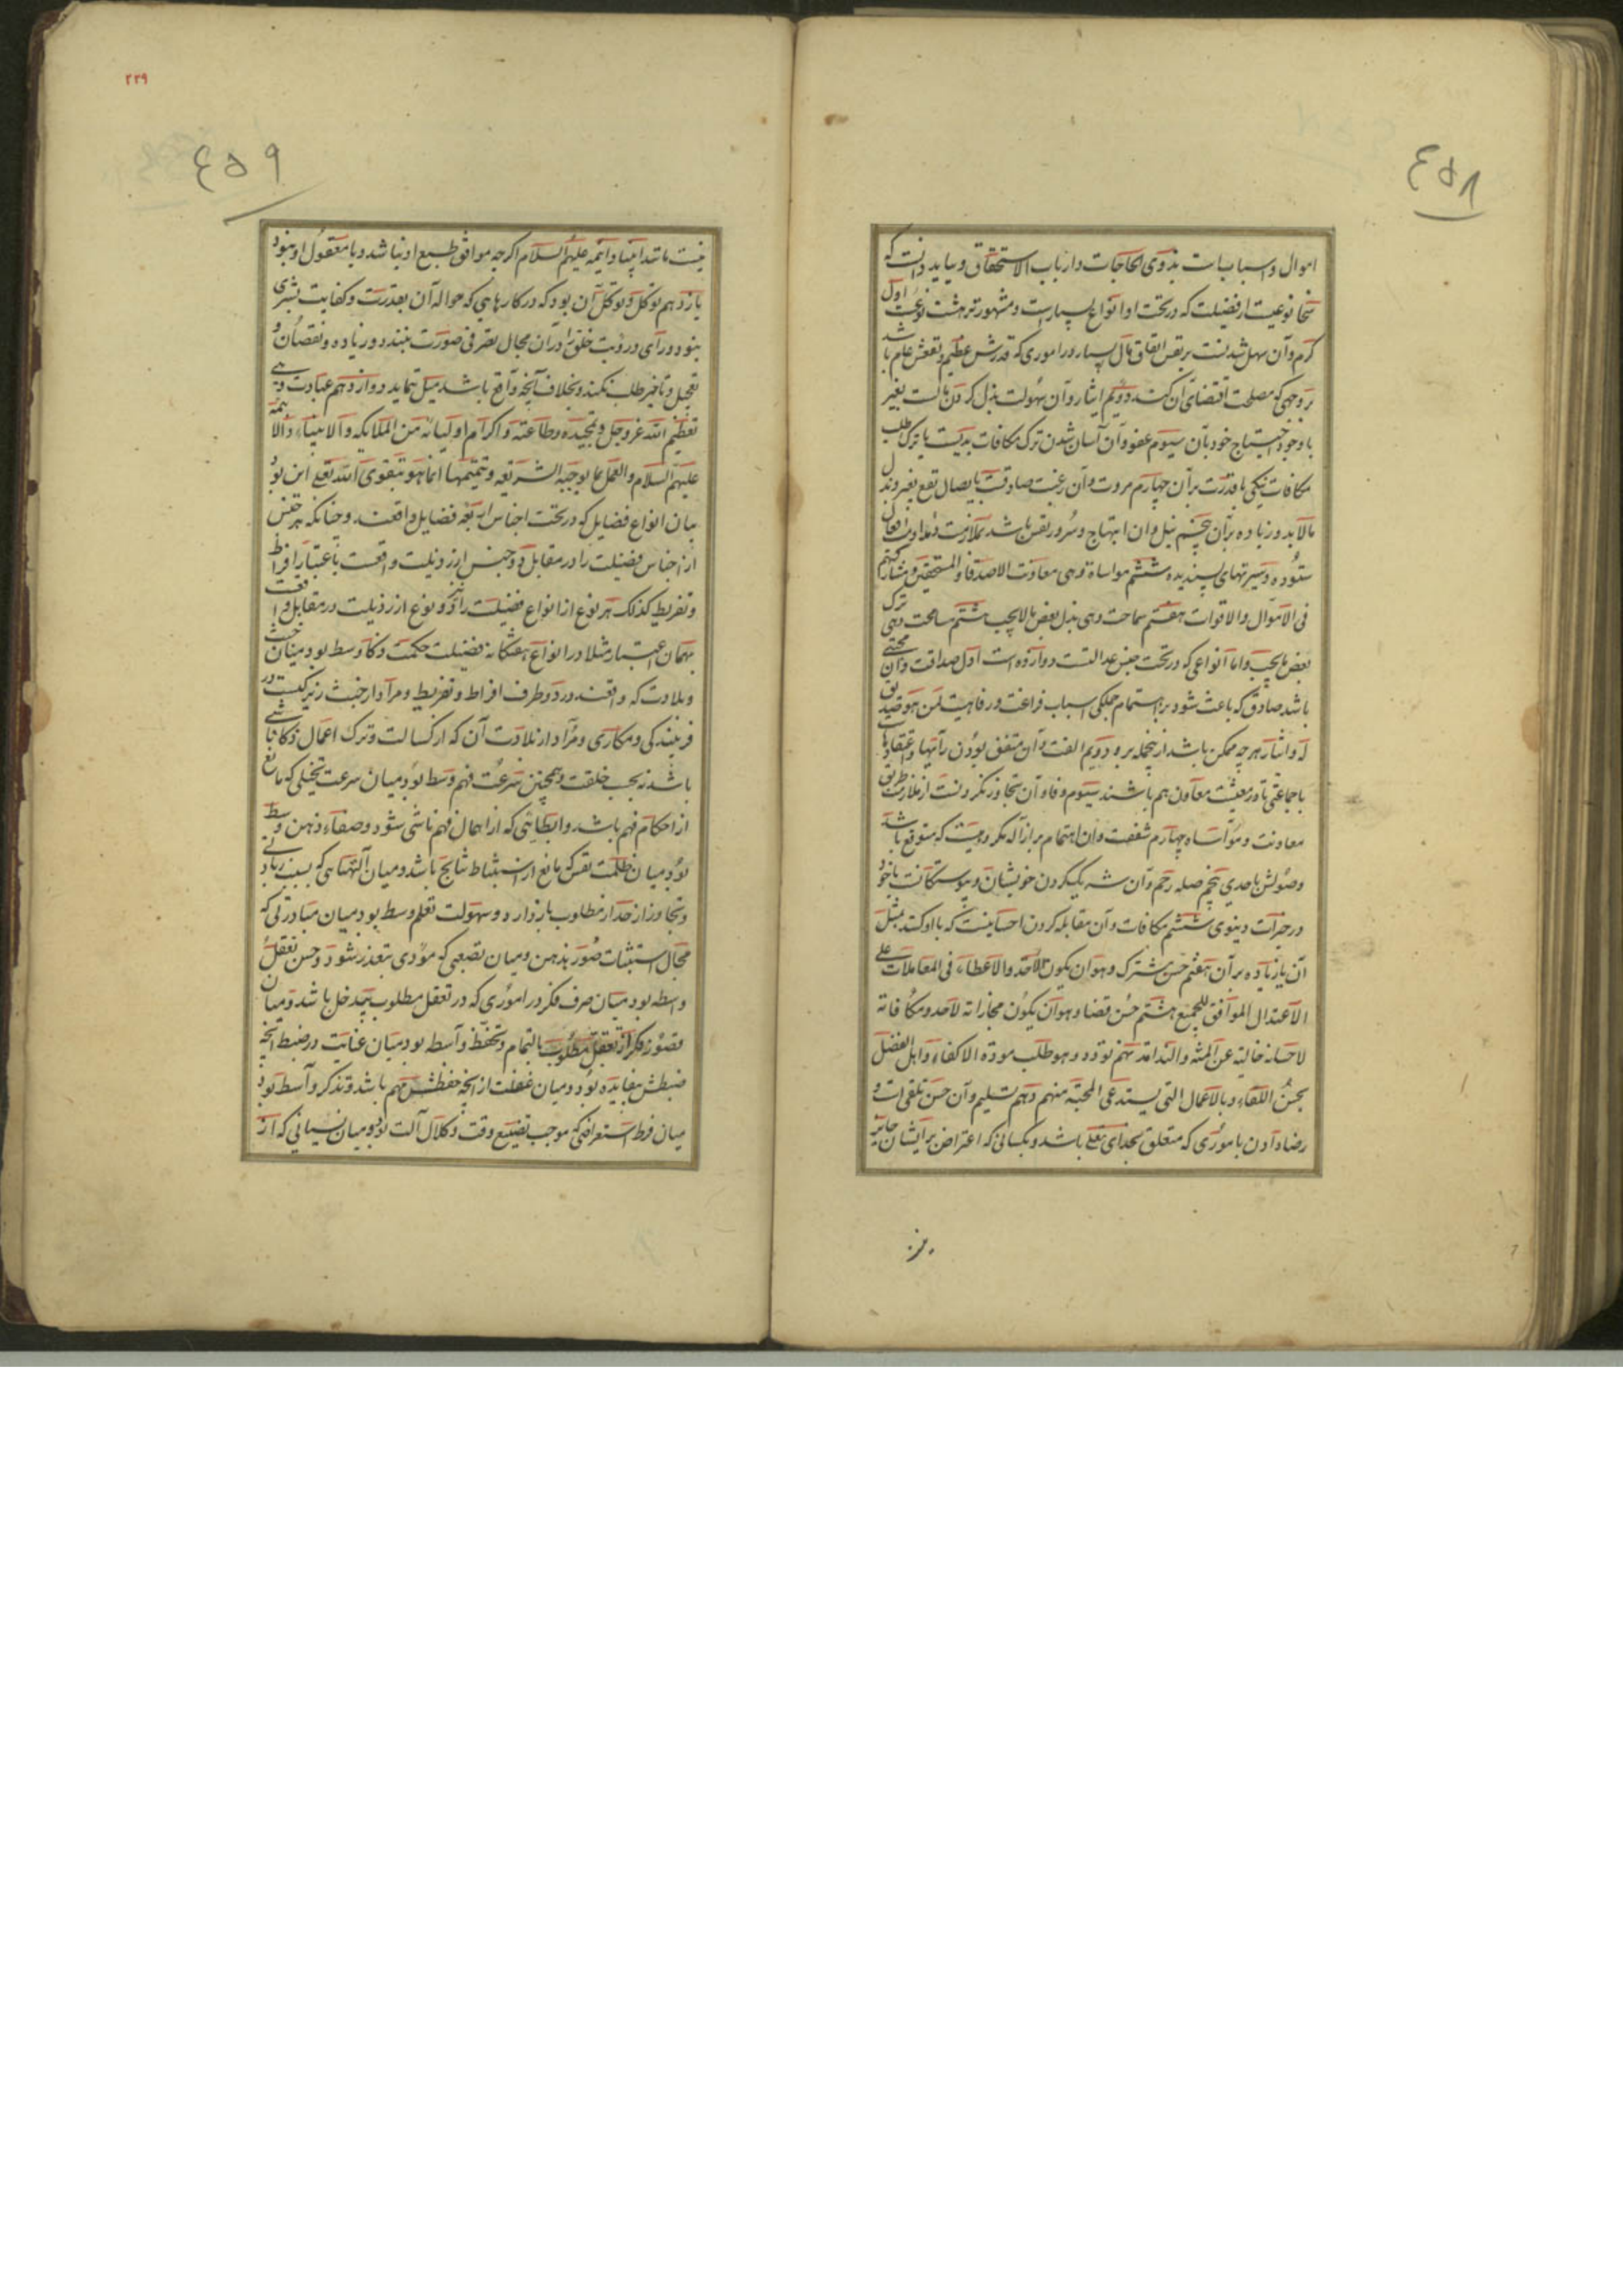 ٤٥٨
اموال و اسباب بذوی الحاجات و ارباب الاستحقاق و بباید دانست که
سخا نوعیست از فضیلت که در تحت او انواع بسیارست و مشهورتر هشت نوعست اول
کرم و آن سهل شدنست بر نفس انفاق مال بسیار در اموری که قدرش عظیم و نفعش عام باشد
بر وجهی که مصلحت اقتضای آن کند دویم ایثار و آن سهولت بذل کردن مالست بغیر
با وجود احتیاج خود بآن سیوم عفو و آن آسان شدن ترک مکافات بدیست یا ترک طلب
مکافات نیکی با قدرت بر آن چهارم مروت و آن رغبت صادقست بایصال نفع بغیر و بذل
مالابد و زیاده بر آن پنجم نیل و ان ابتهاج و سرور نفس باشد بملازمت و مداومت افعال
ستوده و سیرتهای پسندیده ششم مواساة و هی معاونت الاصدقا و المستحقین و مشارکتهم
فی الاموال و الاقوات هفتم سماحت و هی بذل بعض مالایجب هشتم مسامحت و هی ترک
بعض مایجب و اما انواعی که در تحت جنس عدالتست دوازده است اول صداقت و آن محبتی
باشد صادق که باعث شود بر اهتمام جملگی اسباب فراغت و رفاهیت لمن هو صدیق
له و ایثار هر چه ممکن باشد از پنجمله برو دویم الفت و آن متفق بودن رأیها و اعتقادها
با جماعتی تا در معیشت معاون هم باشند سیوم وفا و آن تجاوز نکردنست از ملازمت طریق
معاونت و مواساه چهارم شفقت و ان اهتمام بر ازاله مکروهیست که متوقع باشد
وصولش باحدی پنجم صله رحم و آن شریک کردن خویشان و پیوستکانست با خود
در خیرات دنیوی ششم مکافات و آن مقابله کردن احسانیست که با او کنند بمثل
آن یا زیاده بر آن هفتم حسن مشترک و هو ان یکون الاخذ و الاعطاء فی المعاملات علی
الاعتدال الموافق للجمیع هشتم حسن قضا و هو ان یکون مجازاته لاحد و مکافاته
لاحسانه خالیه عن المنه و الندامه نهم تودد و هو طلب موده الاکفاء و اهل الفضل
بحسن اللقاء و بالاعمال التی یستدعی المحبة منهم دهم تسلیم و آن حسن تلقی است و
رضا دادن باموری که متعلق بخدای تعلی باشد و بکسانی که اعتراض بر ایشان جایز
٢٢٩
٤٥٩
نیست مانند انبیا و ائمه علیهم السلام اگرچه موافق طبع او نباشد و یا معقول او نبود
یازدهم توکل و توکل آن بود که در کارهایی که حواله آن بقدرت و کفایت بشری
نبود و رای و رویت خلق را در آن مجال تصرفی صورت نبندد و زیاده و نقصان و
تعجیل و تاخیر طلب نکند و بخلاف آنچه واقع باشد میل ننماید دوازدهم عبادت و هی
تعظیم الله عز و جل و تمجیده و طاعته و اکرام اولیائه من الملایکه و الانبیاء و الائمة
علیهم السلام و العمل بما یوجبه الشریعه و تتمیمها انما هو بتقوی الله تعلی این بود
بیان انواع فضایل که در تحت اجناس اربعه فضایل واقعند و چنانکه هر جنس
از اجناس فضیلت را در مقابل دو جنس از رذیلت واقعست باعتبار افراط
و تفریط کذلک هر نوع از انواع فضیلت را نیز دو نوع از رذیلت در مقابل واقعست
بهمان اعتبار مثلا در انواع هفتکانه فضیلت حکمت ذکا وسط بود میان خبث
و بلادت که واقعند در دو طرف افراط و تفریط و مراد از خبث زیرکیست در
فریبندکی و مکاری و مراد از بلادت آن که از کسالت و ترک اعمال ذکا ناشی
باشد نه بحسب خلقت و همچنین سرعت فهم وسط بود میان سرعت تخیلی که مانع
از احکام فهم باشد و ابطائی که از اهمال فهم ناشی شود و صفاء ذهن وسط
بود میان ظلمت نفس که مانع از استنباط نتایج باشد و میان التهابی که بسبب زیادتی
و تجاوز از حد از مطلوب بازدارد و سهولت تعلم وسط بود میان مبادرتی که
مجال استثبات صور بذهن و میان تصعبی که مودی بتعذر شود و حسن تعقل
واسطه بود میان صرف فکر در اموری که در تعقل مطلوب بیدخل باشد و میان
قصور فکر از تعقل مطلوب بالتمام و تحفظ واسطه بود میان عنایت در ضبط آنچه
ضبطش بیفایده بود و میان غفلت از آنچه حفظش مهم باشد و تذکر واسطه بود
میان فرط استعراضی که موجب تضییع وقت و کلال آلت بود و میان نسیانی که از